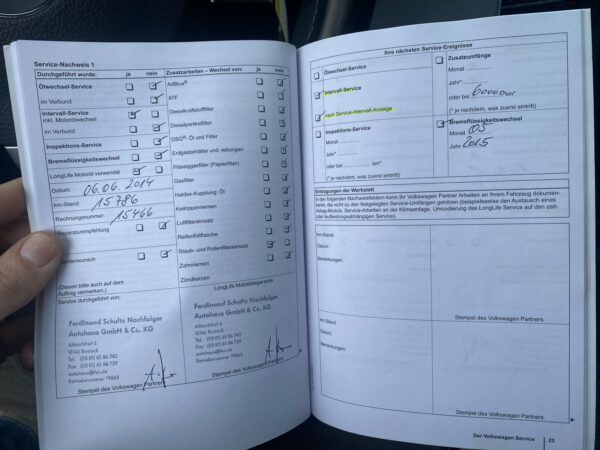 Service-Nachweis 1
Durchgeführt wurde: ja nein
Ölwechsel-Service
im Verbund
Intervall-Service
inkl. Motorölwechsel
im Verbund
Inspektions-Service
Bremsflüssigkeitswechsel
LongLife Motoröl verwendet
Datum: 06.06.2014
km-Stand: 15786
Rechnungsnummer: 15466
Reparaturempfehlung
Kundenwunsch
(Diesen bitte auch auf dem
Auftrag vermerken.)
Service durchgeführt von:
Ferdinand Schultz Nachfolger
Autohaus GmbH & Co. KG
18146 Rostock
Stempel des Volkswagen Partners
Zusatzarbeiten – Wechsel von: ja nein
AdBlue®
ATF
Dieselkraftstofffilter
Dieselpartikelfilter
DSG®: Öl und Filter
Erdgasbehälter und -leitungen
Flüssiggasfilter (Papierfilter)
Gasfilter
Haldex-Kupplung: Öl
Keilrippenriemen
Luftfiltereinsatz
Reifenfülltasche
Staub- und Pollenfiltereinsatz
Zahnriemen
Zündkerzen
LongLife Mobilitätsgarantie
Ferdinand Schultz Nachfolger
Autohaus GmbH & Co. KG
18146 Rostock
Stempel des Volkswagen Partners
Ihre nächsten Service-Ereignisse
Ölwechsel-Service
Intervall-Service
nach Service-Intervall-Anzeige
Inspektions-Service
Monat
Jahr*
oder bei km*
(* je nachdem, was zuerst eintritt)
Zusatzumfänge
Monat
Jahr*
oder bei 60000 km*
(* je nachdem, was zuerst eintritt)
Bremsflüssigkeitswechsel
Monat 05
Jahr 2015
Eintragungen der Werkstatt
In den folgenden Nachweisfeldern kann Ihr Volkswagen Partner Arbeiten an Ihrem Fahrzeug dokumen-
tieren, die nicht zu den festgelegten Service-Umfängen gehören (beispielsweise den Austausch eines
Airbag-Moduls, Service-Arbeiten an der Klimaanlage, Umcodierung des LongLife Service auf den zeit-
oder laufleistungsabhängigen Service).
km-Stand:
Datum:
Bemerkungen:
Stempel des Volkswagen Partners
km-Stand:
Datum:
Bemerkungen:
Stempel des Volkswagen Partners
Der Volkswagen Service 23